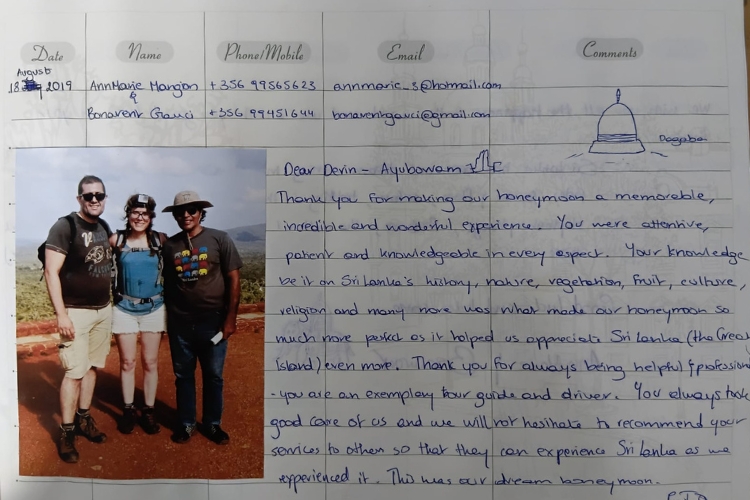 Date Name Phone/Mobile Email Comments
August
18 2019 AnnMarie Mangion +356 99565623 annmarie_s@hotmail.com
&
Bonavent Gauci +356 99451644 bonaventgauci@gmail.com
Dagaba
Dear Devin - Ayubowam
Thank you for making our honeymoon a memorable,
incredible and wonderful experience. You were attentive,
patient and knowledgeable in every aspect. Your knowledge
be it on Sri Lanka's history, nature, vegetation, fruit, culture,
religion and many more was what made our honeymoon so
much more perfect as it helped us appreciate Sri Lanka (the Great
Island) even more. Thank you for always being helpful & profession
- you are an exemplary tour guide and driver. You always took
good care of us and we will not hesitate to recommend your
services to others so that they can experience Sri Lanka as we
experienced it. This was our dream honeymoon.
P.T.O